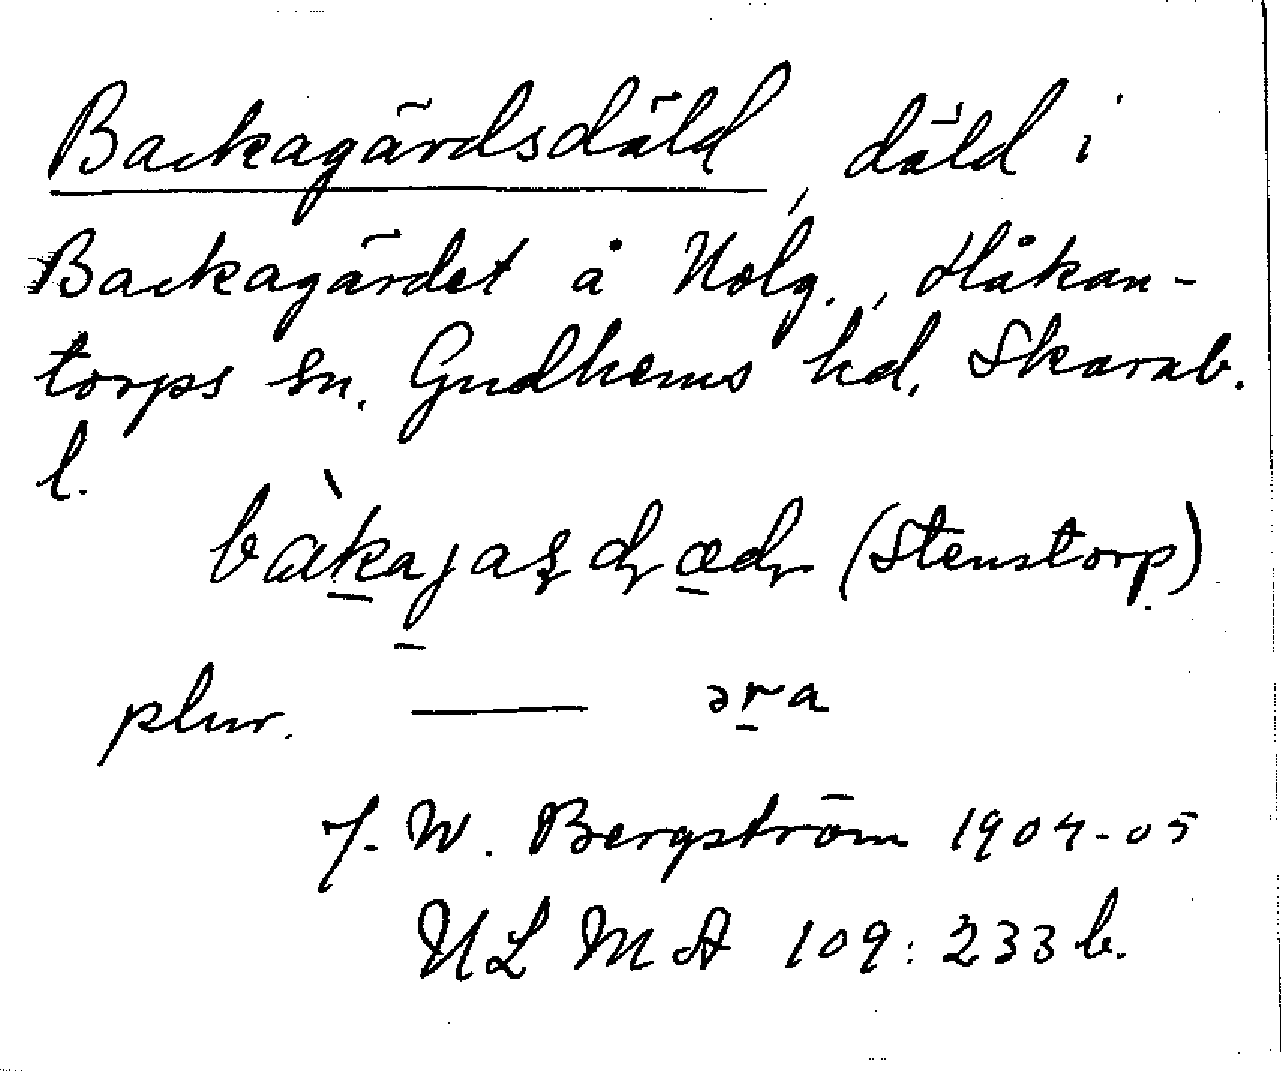 Backagärdsdäld, däld i
Backagärdet å Nolg., Håkan-
torps sn. Gudhems hd. Skarab.
l.
(Stenstorp)
plur. —— əra
J. W. Bergström 1904-05
ULMA 109:233 b.